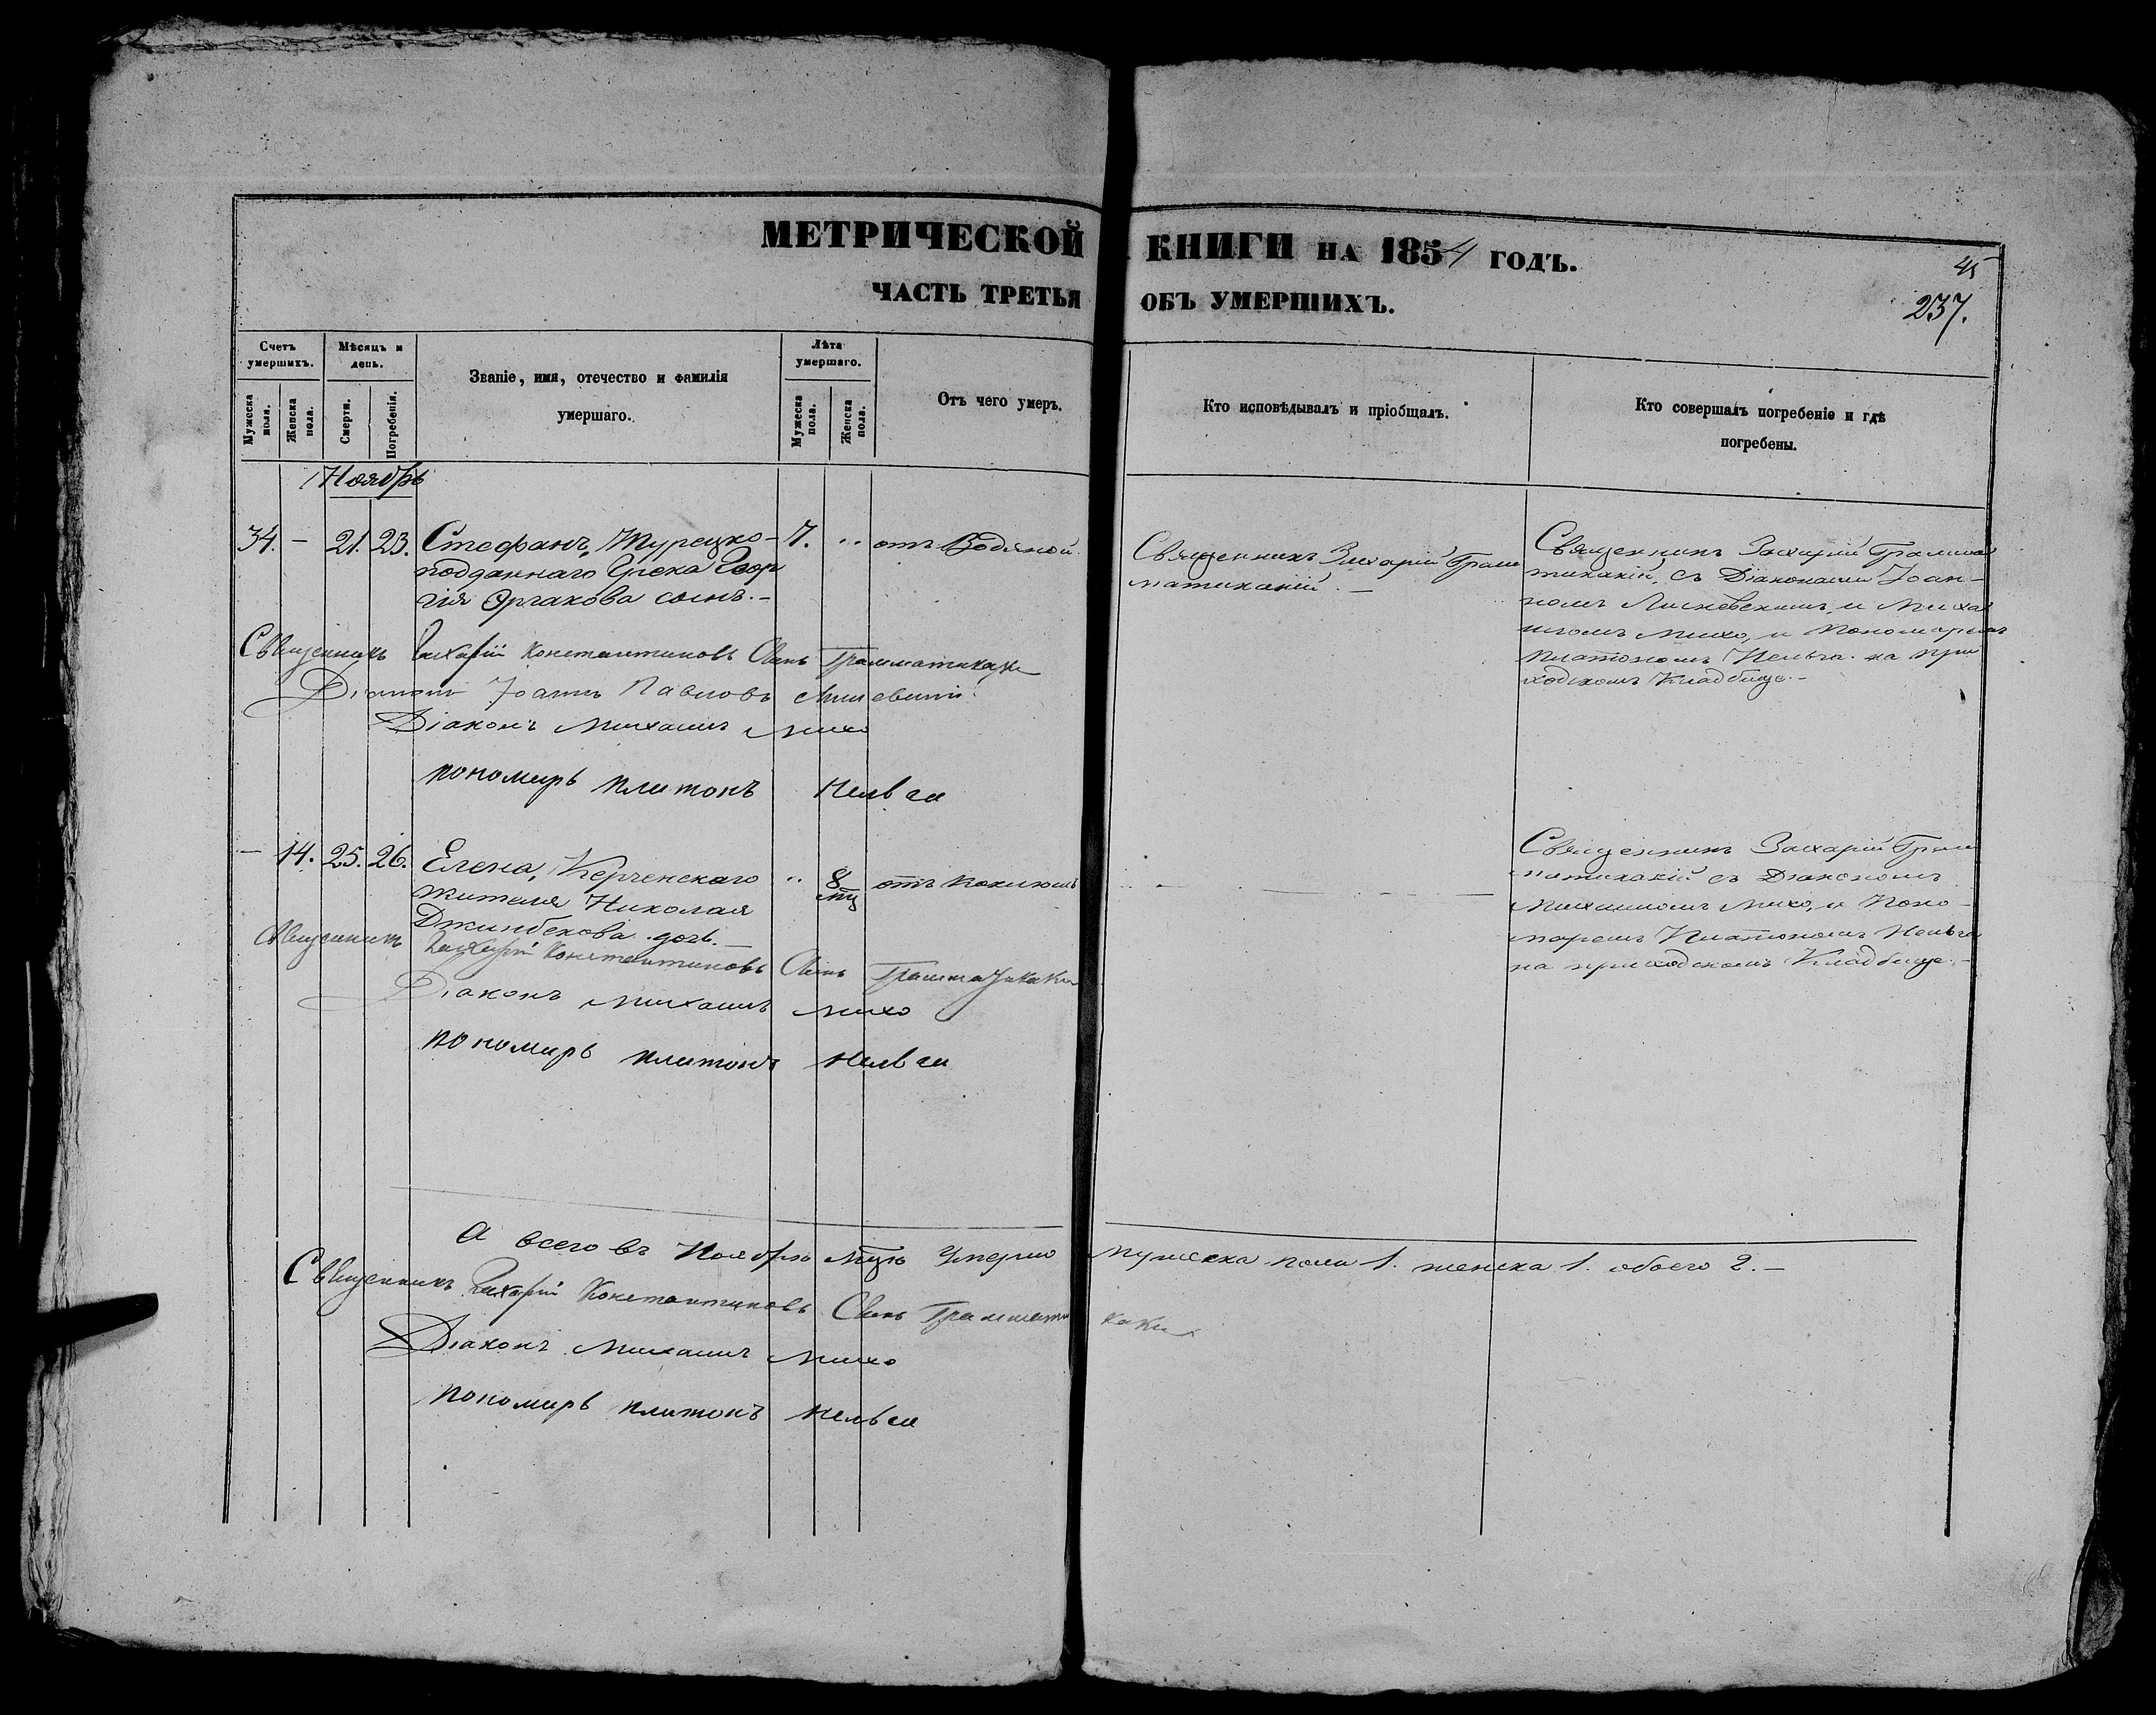 МЕТРИЧЕСКОЙ КНИГИ НА 1854 ГОДЪ.
ЧАСТЬ ТРЕТЬЯ ОБЪ УМЕРШИХЪ.
45
237.
Счетъ умершихъ.
Мѣсяцъ и день.
Званіе, имя, отечество и фамилія умершаго.
Лѣта умершаго.
Отъ чего умеръ.
Кто исповѣдывалъ и пріобщалъ.
Кто совершалъ погребеніе и гдѣ погребены.
Мужеска пола.
Женска пола.
Смерти.
Погребенія.
Мужеска пола.
Женска пола.
Ноябрь
34. – 21. 23. Стефанъ, Турецко- 7. " отъ Водяной
подданнаго Грека Геор
гія Орлахова сынъ.–
Священникъ Захарій Грам
матикакій. –
Священникъ Захарій Грамма
тикакій, съ Діаконами Іоан-
номъ и Миха
иломъ Михо, и Пономаремъ
Платономъ на при
ходскомъ Кладбище.–
Священникъ Захарій Константиновъ Сынъ Грамматикаки
Діаконъ Іоаннъ Павловъ
Діаконъ Михаилъ Михо
пономарь платонъ
– 14. 25. 26. Елена, Керченскаго " 8 мц отъ
жителя Николая
Джинбекова дочь. –
Священникъ Захарій Грам
матикакій съ Діакономъ
Михаиломъ Михо, и Поно-
маремъ Платономъ
на приходскомъ Кладбище.–
Священникъ Захарій Константиновъ Сынъ Грамматикаки
Діаконъ Михаилъ Михо
пономарь платонъ
А всего въ Ноябрѣ мцѣ Умерло мужеска пола 1. женска 1. обоего 2. –
Священникъ Захарій Константиновъ Сынъ Грамматикаки
Діаконъ Михаилъ Михо
пономарь платонъ